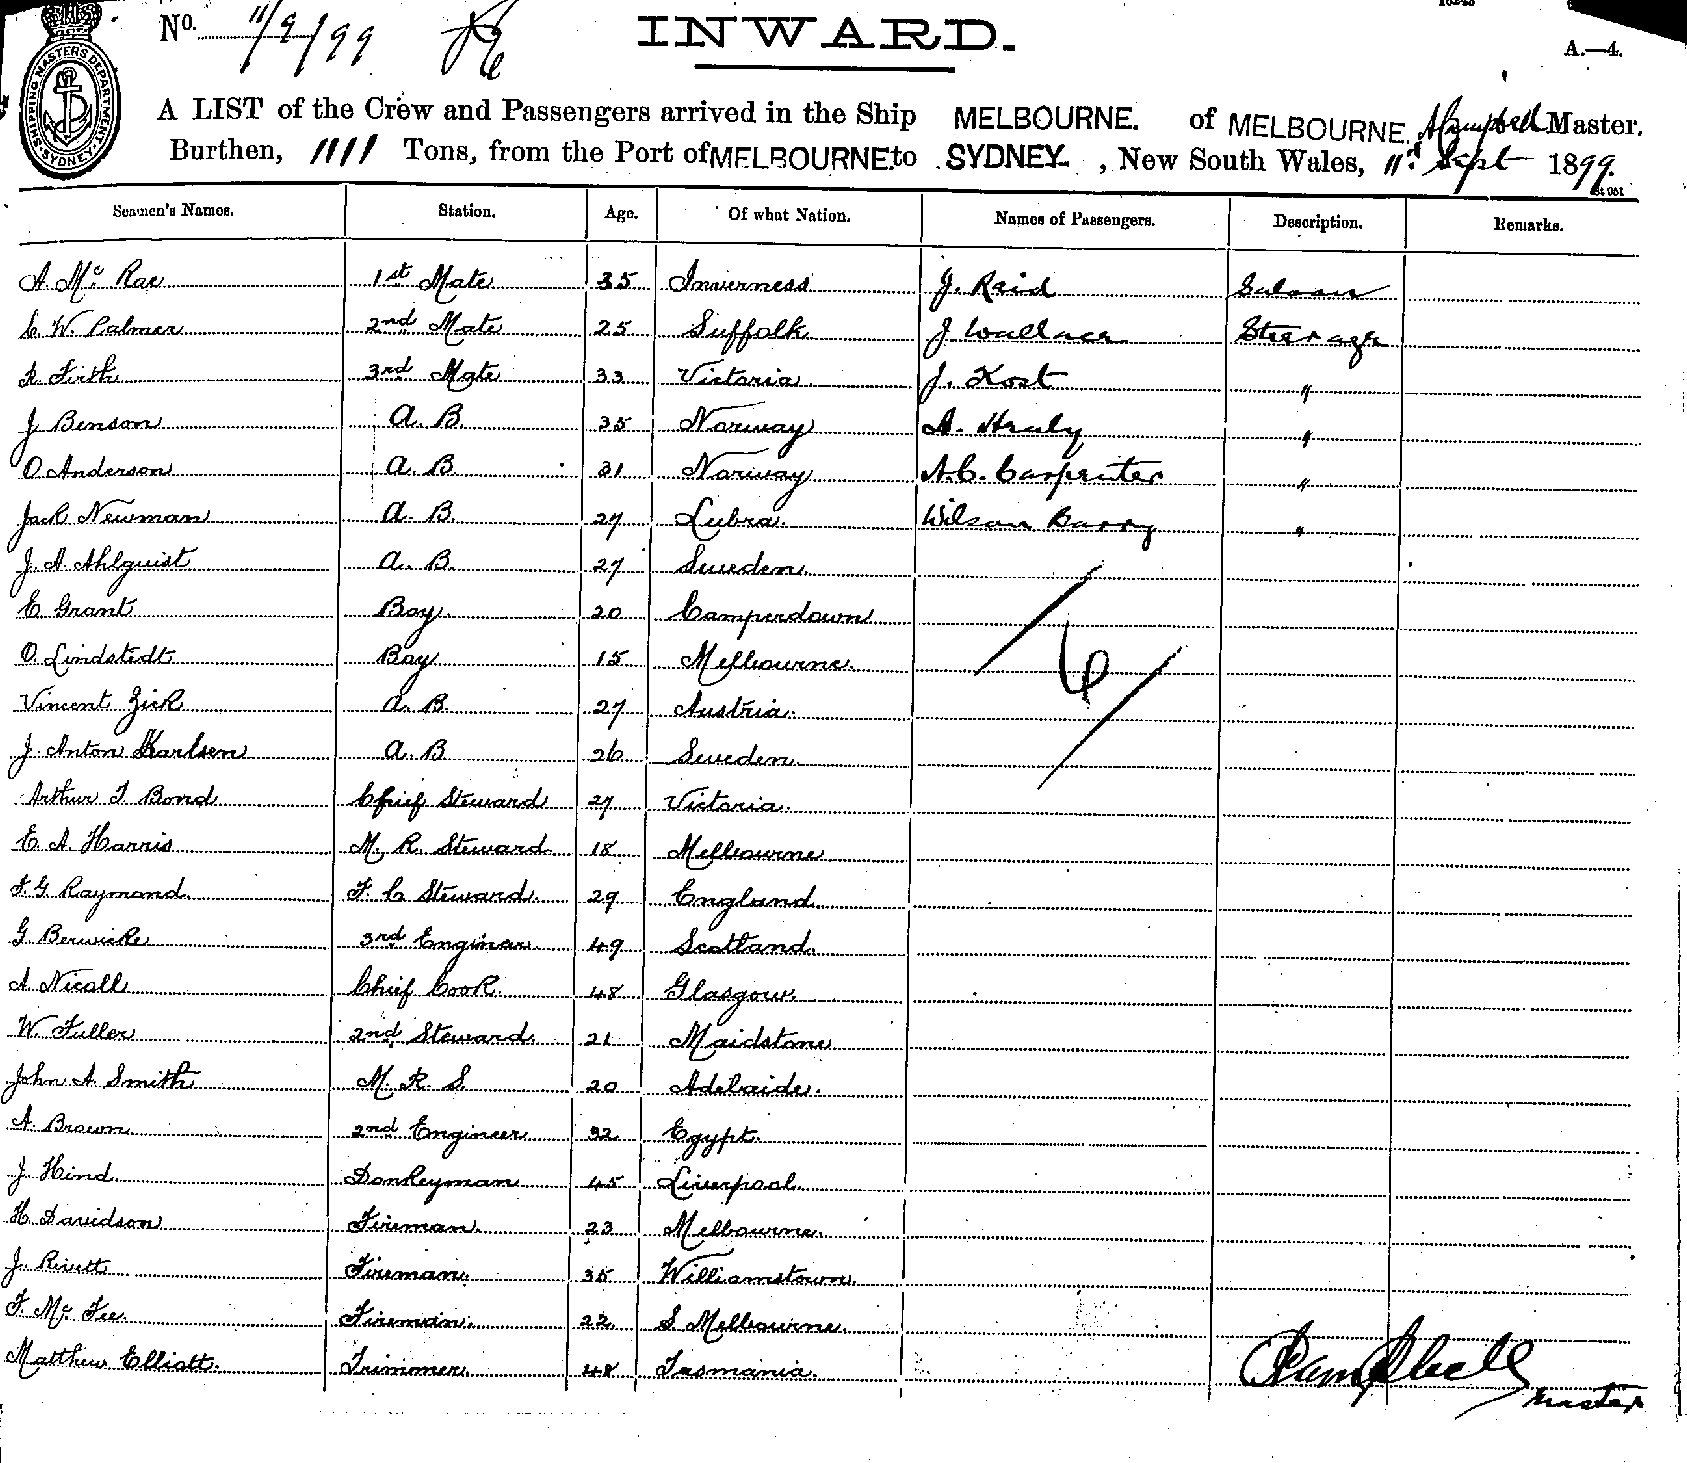 No. 11/9/99
INWARD.
A.—4.
SHIPPING MASTERS DEPARTMENT SYDNEY.
A LIST of the Crew and Passengers arrived in the Ship MELBOURNE. of MELBOURNE, A Campbell Master.
Burthen, 1111 Tons, from the Port of MELBOURNE to SYDNEY. , New South Wales, 11th Sept 1899.
Seamen's Names. Station. Age. Of what Nation. Names of Passengers. Description. Remarks.
A Mc Rae 1st Mate 35 Inverness J. Reid Saloon
C. W. Palmer 2nd Mate 25 Suffolk J Wallace Steerage
R Firth 3rd Mate 33 Victoria J. Kost "
J Benson A. B. 35 Norway A. Healy "
O Anderson A. B 31 Norway A. C. Carpenter "
Jack Newman A. B. 27 Lubra Wilson Barry "
J. A Ahlquist A. B. 27 Sweden
E Grant Boy. 20 Camperdown
O. Lindstedt Boy 15 Melbourne.
6
Vincent Zick A. B 27 Austria.
J. Anton Karlsen A. B 26 Sweden
Arthur T Bond Chief Steward 27 Victoria.
E A. Harris M. R. Steward 18 Melbourne
F. G Raymond. F. C Steward. 29 England
G Berwicke 3rd Engineer 49 Scotland.
A Nicoll Chief Cook 48 Glasgow.
W. Fuller 2nd Steward. 21 Maidstone
John A Smith M. R S. 20 Adelaide.
A. Brown 2nd Engineer 32 Egypt.
J Hind Donkeyman 45 Liverpool.
H. Davidson Fireman. 23 Melbourne.
J. Rivett Fireman. 35 Williamstown.
F. Mc. Fee Fireman. 22 S Melbourne.
Matthew Elliott. Trimmer. 48 Tasmania.
Campbell
Master